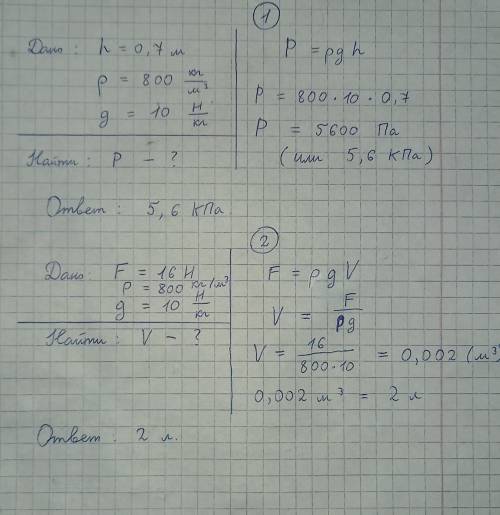 1
Дано: h = 0,7 м
ρ = 800 кг/м³
g = 10 Н/кг
Найти: P - ?
P = ρgh
P = 800·10·0,7
P = 5600 Па
(или 5,6 КПа)
Ответ: 5,6 КПа
2
Дано: F = 16 Н
ρ = 800 кг/м³
g = 10 Н/кг
Найти: V - ?
F = ρgV
V = F/ρg
V = 16/800·10 = 0,002 (м³)
0,002 м³ = 2 л
Ответ: 2 л.